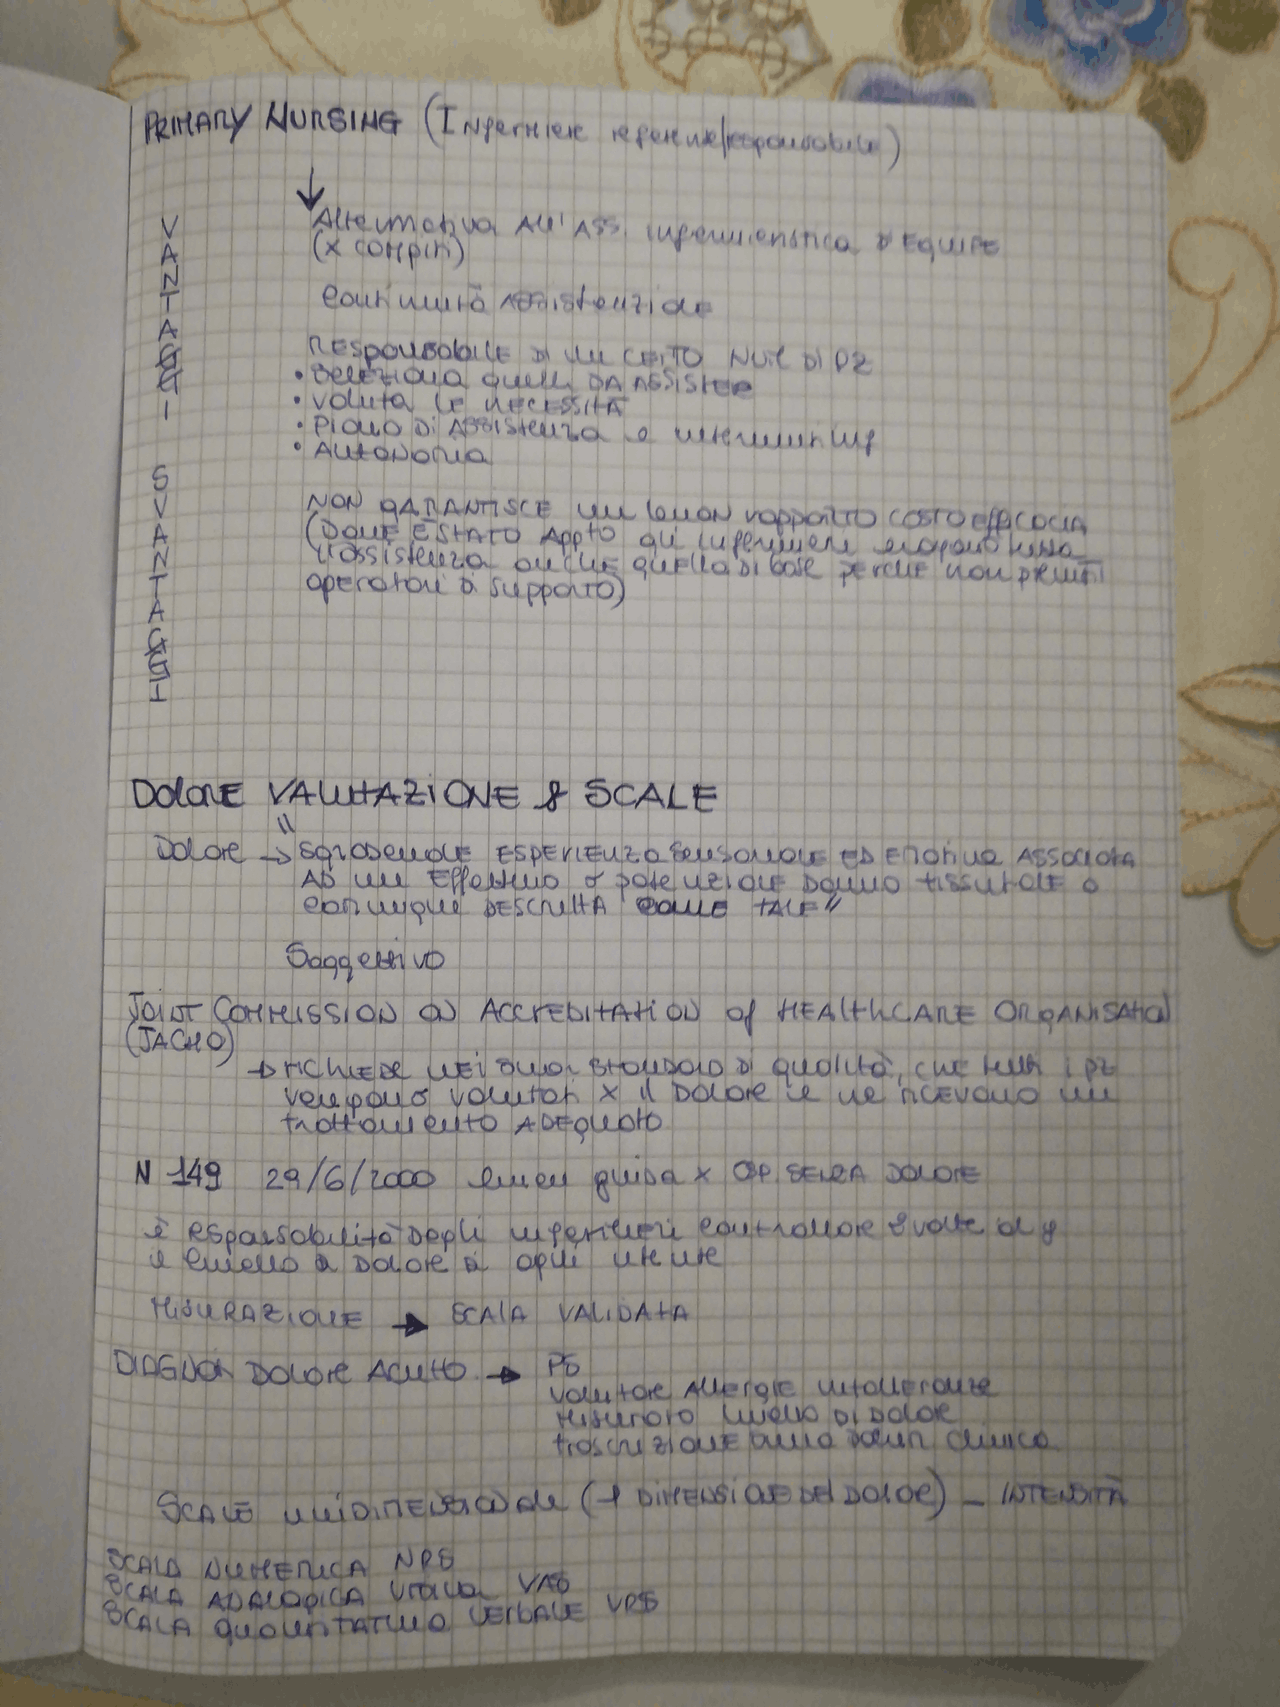 PRIMARY NURSING (Infermiere referente/responsabile)
VANTAGGI
Alternativa All'ASS. infermieristica D'EQUIPE
(X COMPITI)
Continuità ASSISTENZIALE
RESPONSABILE DI UN CERTO NUM. DI PZ
• SELEZIONA quelli DA ASSISTERE
• VALUTA LE NECESSITÀ
• PIANO DI ASSISTENZA e interventi inf
• AUTONOMIA
SVANTAGGI
NON GARANTISCE un buon rapporto COSTO EFFICACIA
(DOVE È STATO App.to gli infermieri erogano tutta
l'assistenza anche quella di base perche non previsti
operatori di supporto)
DOLORE VALUTAZIONE & SCALE
Dolore → "Sgradevole ESPERIENZA sensoriale ED EMOTIVA ASSOCIATA
AD un Effettivo o potenziale DANNO tissutale o
comunque DESCRITTA COME TALE"
Soggettivo
JOINT COMMISSION ON ACCREDITATION of HEALTHCARE ORGANISATION
(JACHO)
→ RICHIEDE NEI suoi standard di qualità, che tutti i pz
vengano valutati x il DOLORE e ne ricevano un
trattamento ADEGUATO
N 149 29/6/2000 linea guida x OSP. SENZA DOLORE
è responsabilità Degli infermieri controllare 3 volte al g
il livello di DOLORE di ogni utente
MISURAZIONE → SCALA VALIDATA
DIAGNOSI DOLORE ACUTO → PS
valutare Allergie intolleranze
misurato livello DI DOLORE
trascrizione sulla docum clinica
SCALE UNIDIMENSIONALI (1 DIMENSIONE DEL DOLORE) - INTENSITÀ
SCALA NUMERICA NRS
SCALA ANALOGICA VISIVA VAS
SCALA QUANTITATIVA VERBALE VRS